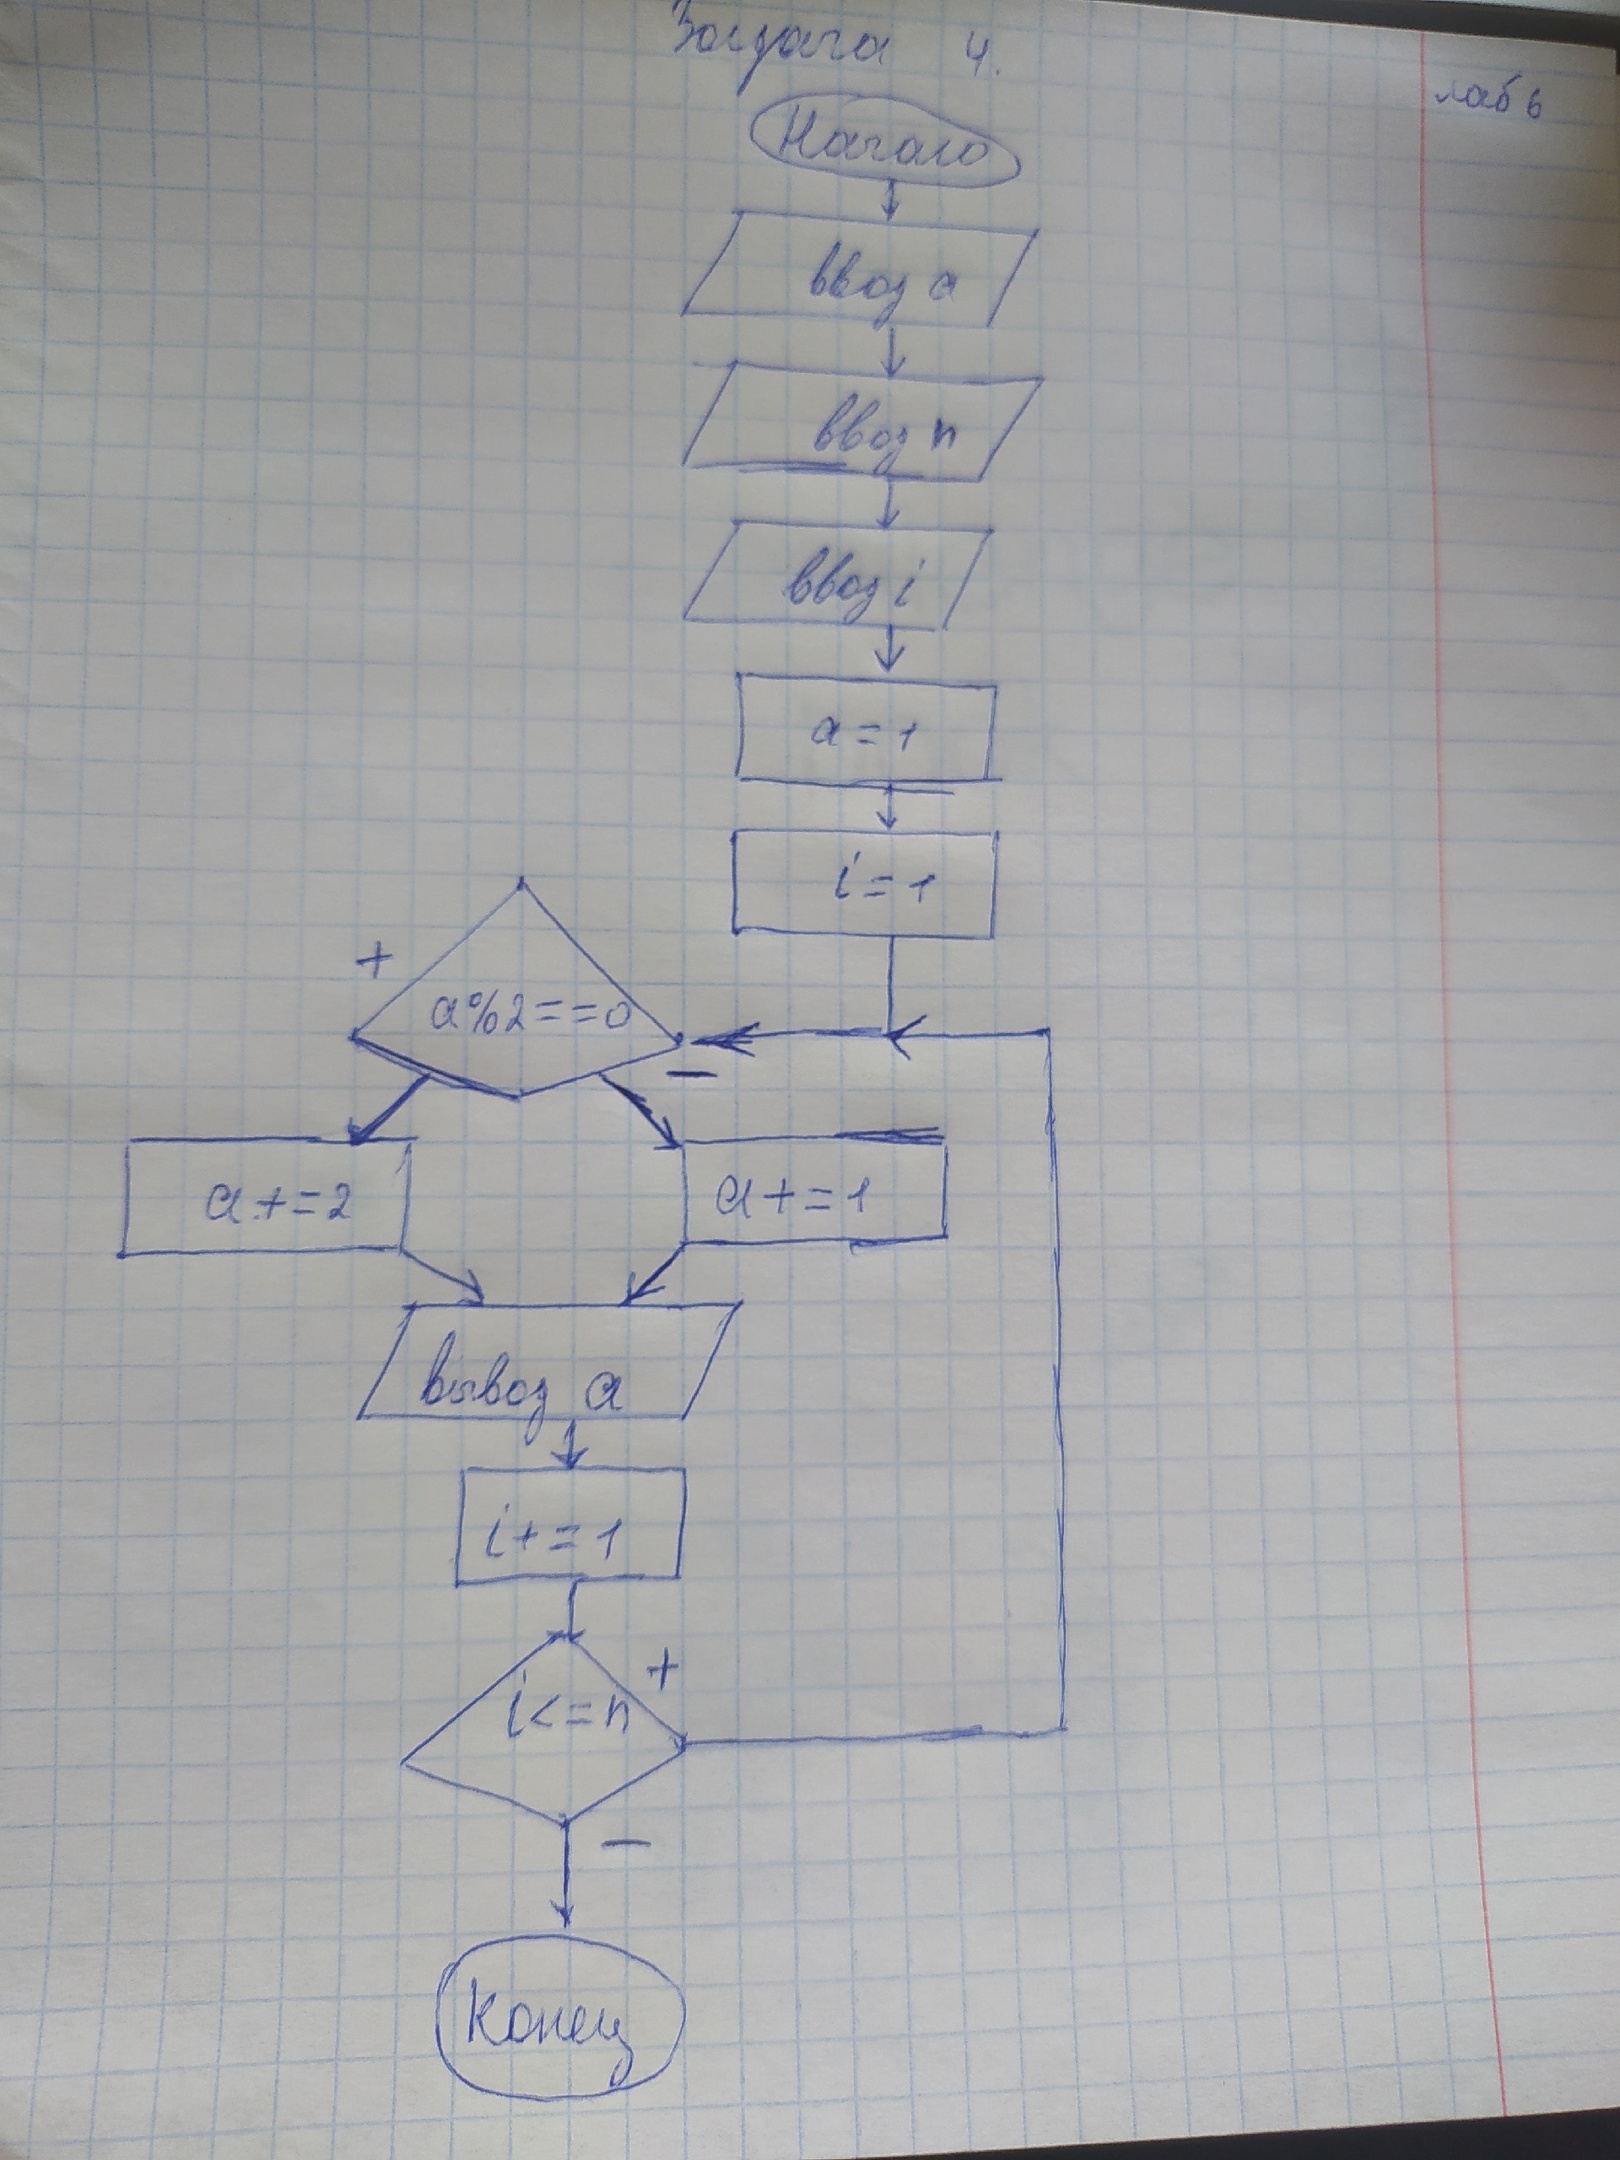 Задача 4.
лаб 6
Начало
ввод a
ввод n
ввод i
a = 1
i = 1
+
a%2==0
−
a+=2
a+=1
вывод a
i+=1
+
i<=n
−
Конец